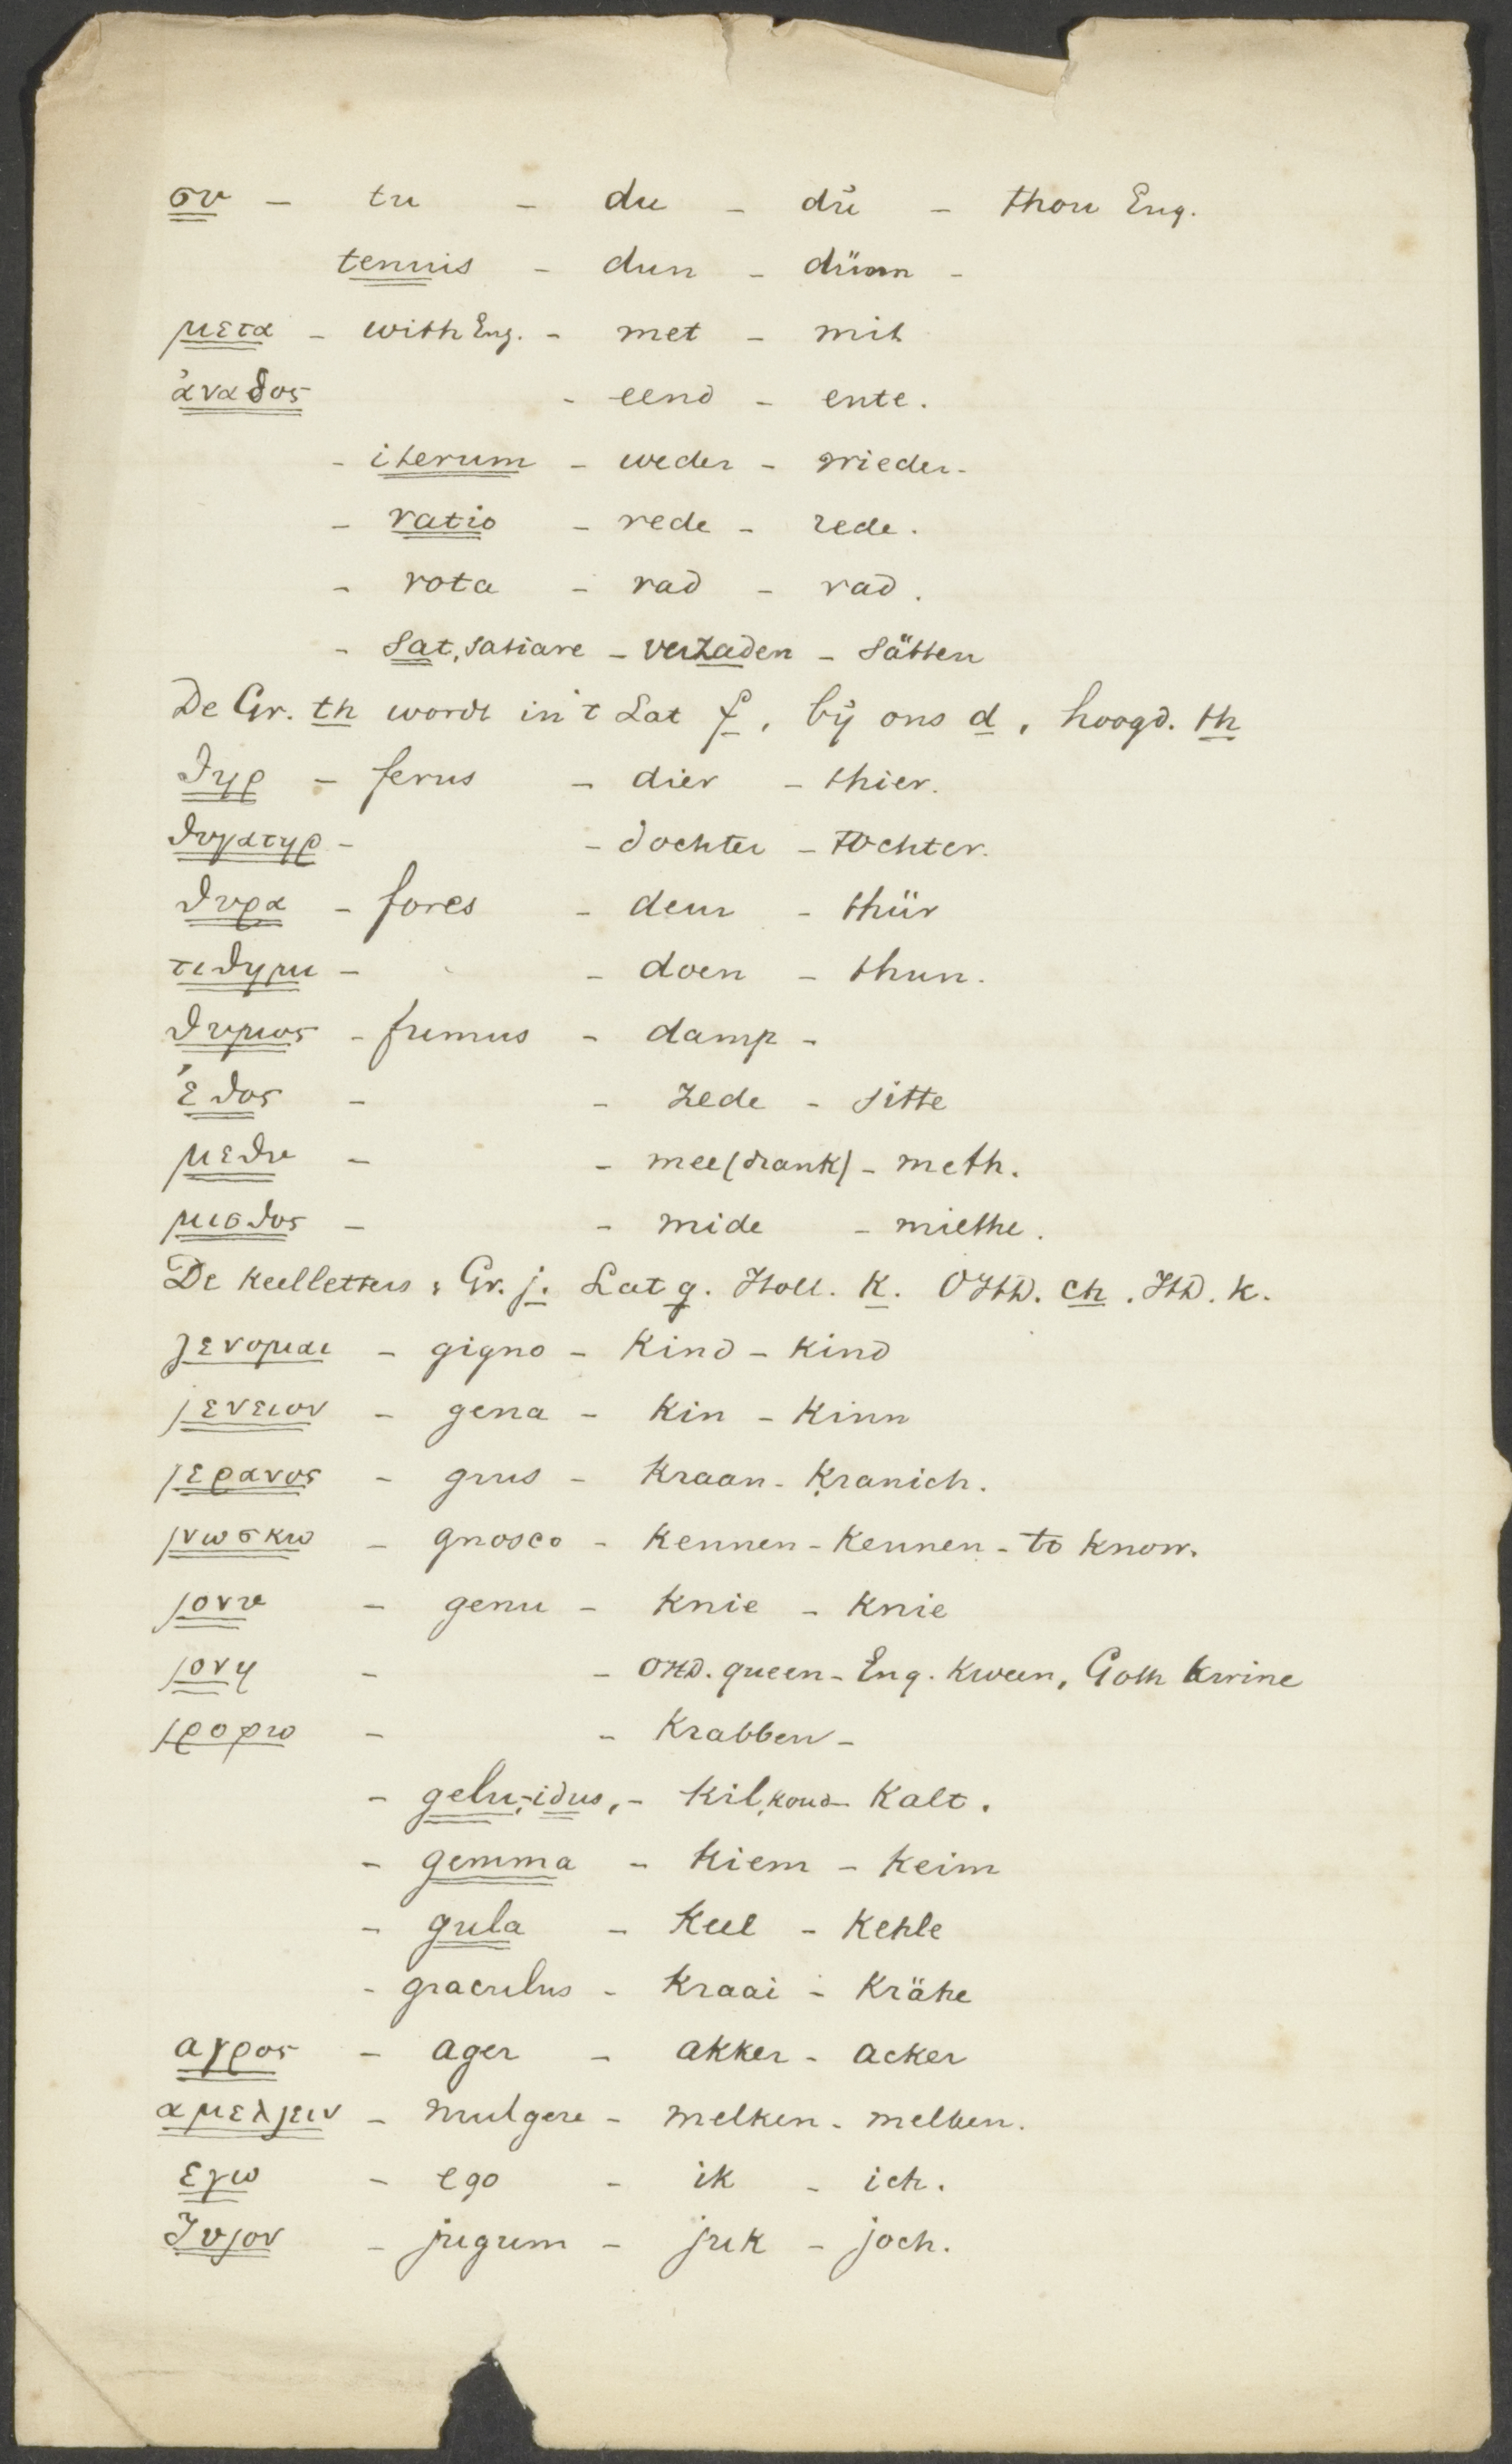 συ - tu - du - dŭ - thou Eng.
tenuis - dun - dünn -
μετα - with Eng. - met - mit
ἀναδος - eend - ente.
- iterum - weder - wieder-
- ratio - rede - rede.
- rota - rad - rad.
- sat, satiare - verzaden - sätten
De Gr. th wordt in't Lat f, bij ons d, hoogd. th
ϑηρ - ferus - dier - thier.
ϑυγατηρ - - dochter - tochter.
ϑυρα - fores - deur - thür
τιϑημι - - doen - thun.
ϑυμος - fumus - damp -
ἐϑος - - zede - sitte
μεϑυ - - mee (drank) - meth.
μισϑος - - mide - miethe.
De keelletters, Gr. γ. Lat g. Holl. K. OHD. ch. HD. k.
γενομαι - gigno - Kind - Kind
γενειον - gena - Kin - Kinn
γερανος - grus - Kraan - Kranich.
γνωσκω - gnosco - Kennen - Kennen - to know.
γονυ - genu - Knie - Knie
γονη - - OHD. queen - Eng. Kween, Goth kwine
γροφω - - Krabben -
- gelu,-idus, - Kil, koud - Kalt.
- gemma - Kiem - Keim
- gula - Keel - Kehle
- graculus - Kraai - Krähe
αγρος - ager - akker - acker
αμελγειν - mulgere - melken - melken.
εγω - ego - ik - ich.
ζυγον - jugum - juk - joch.